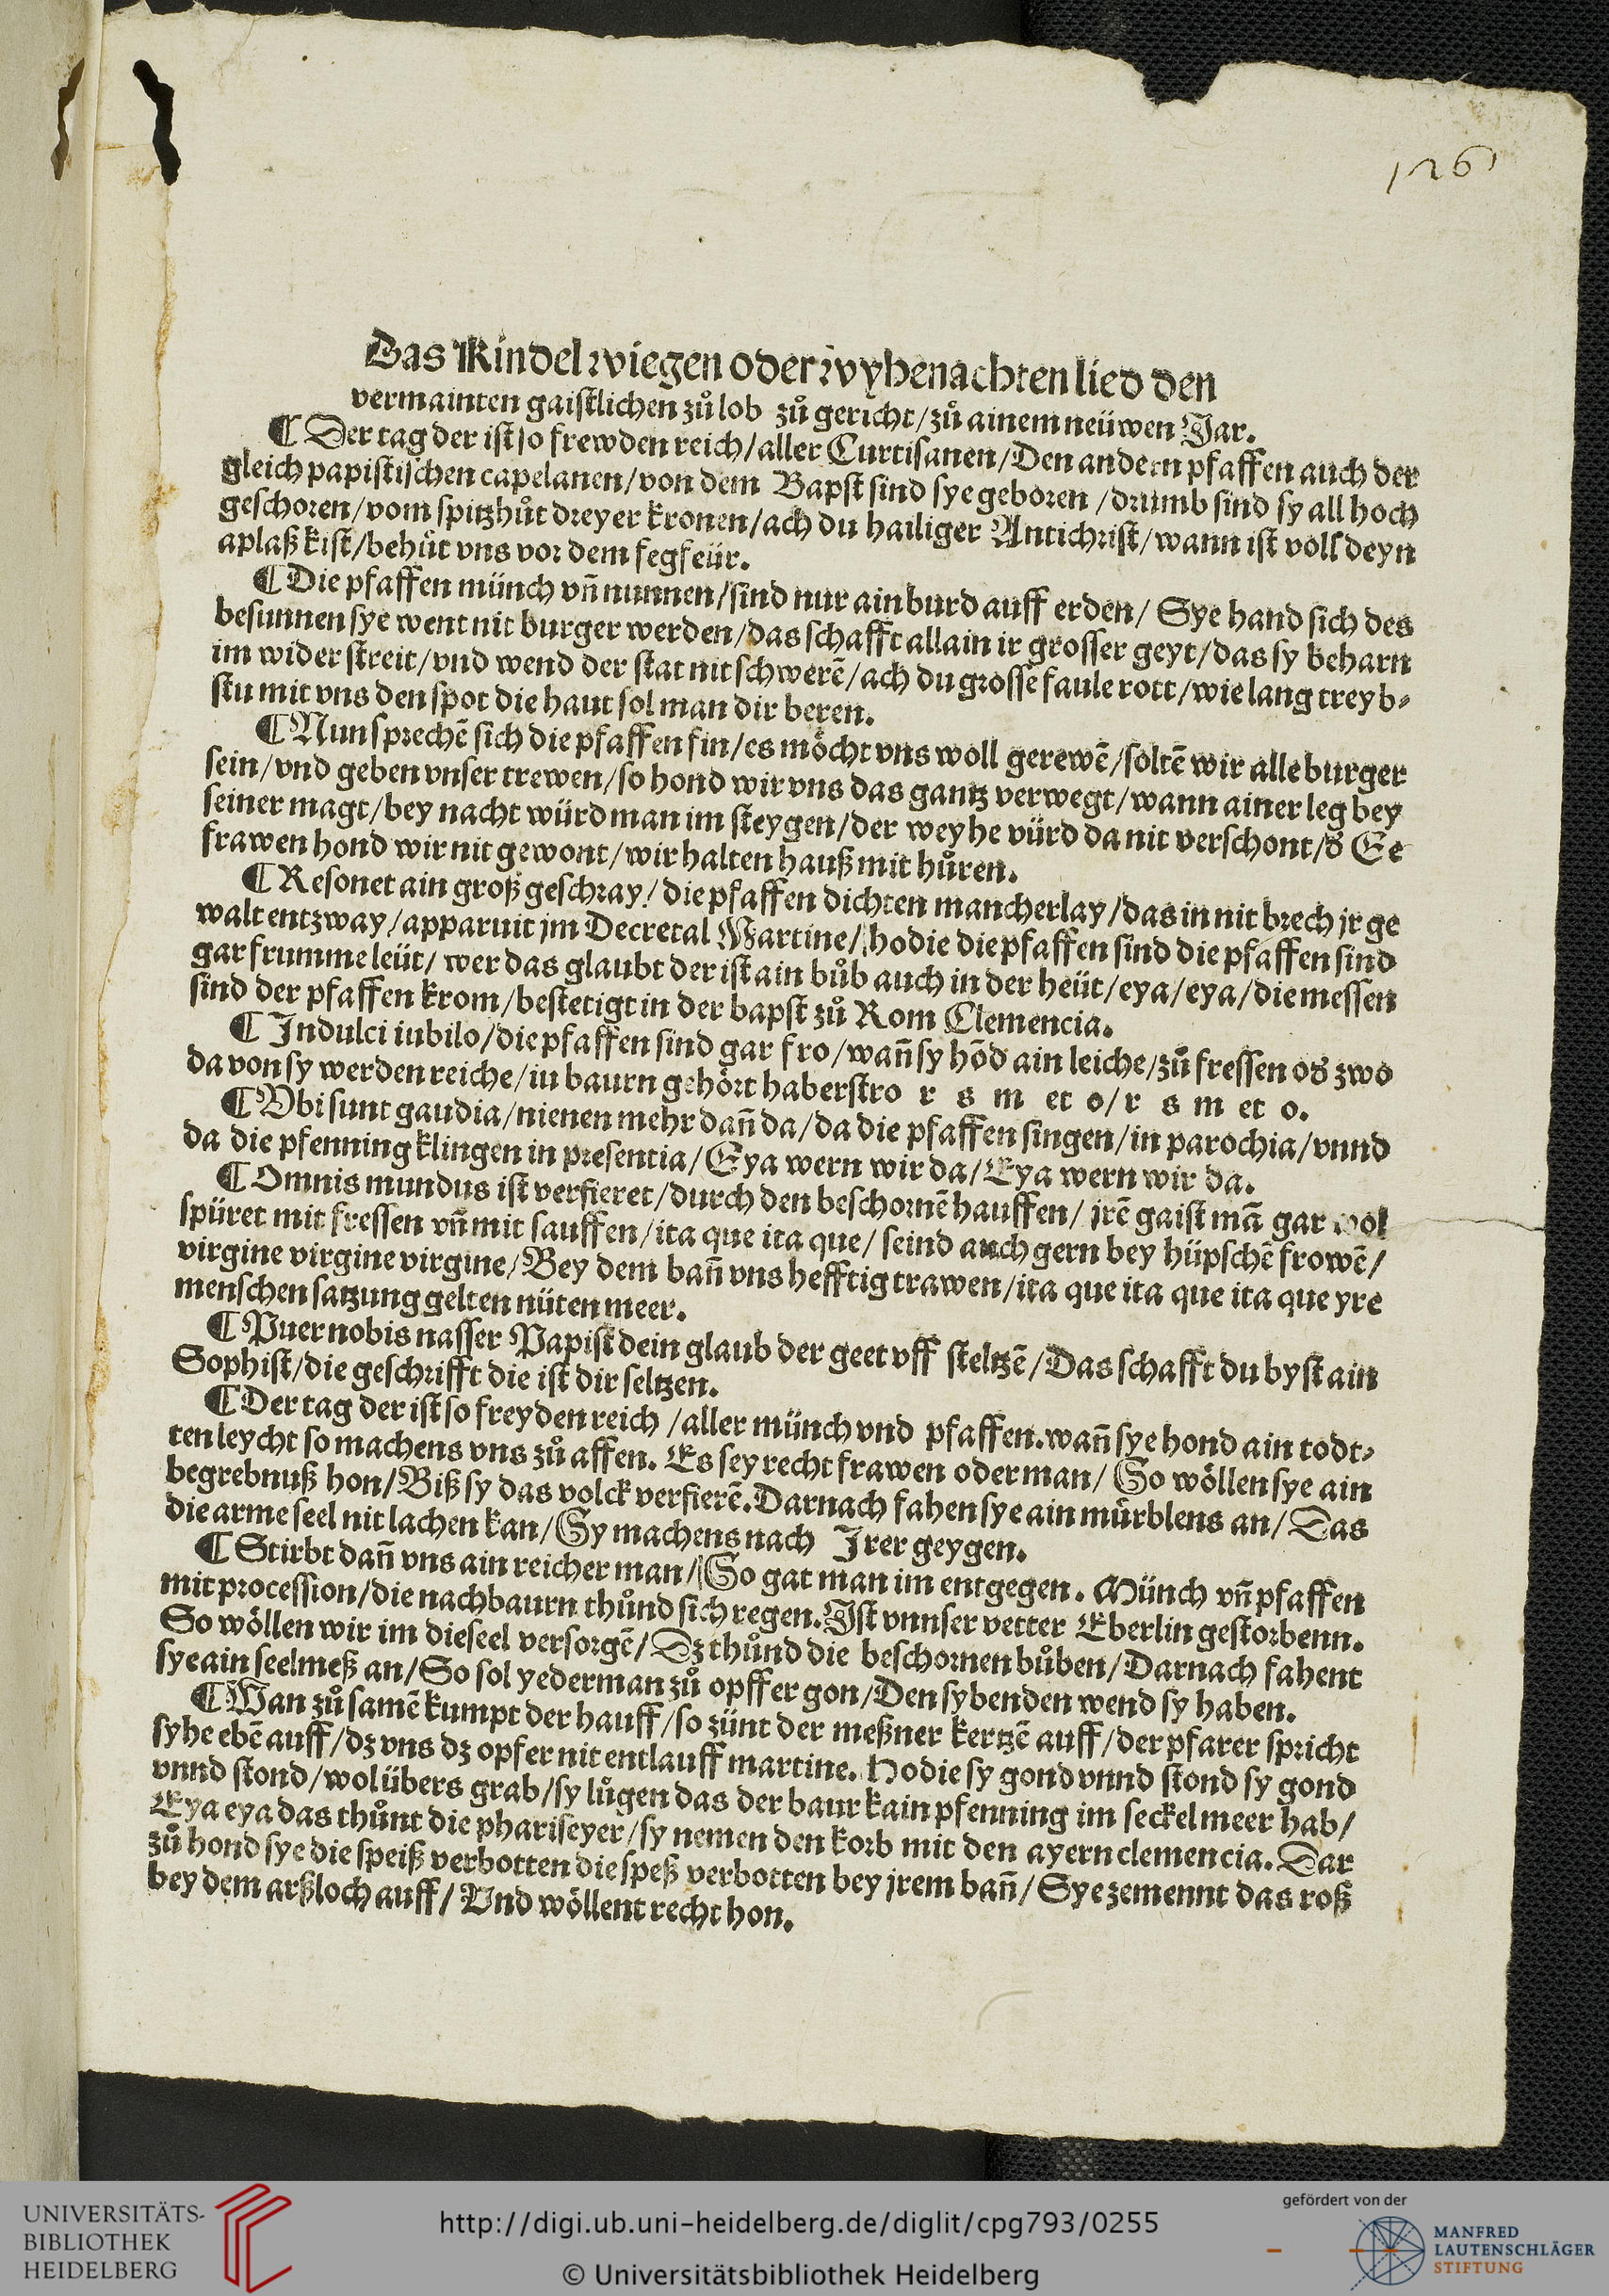 126
Das Kindel wiegen oder wyhenachten lied den
vermainten gaistlichen zů lob zů gericht/zů ainem neüwen Jar.
¶ Der tag der ist so frewden reich/aller Curtisanen/Den andern pfaffen auch der
gleich papistischen capelanen/von dem Bapst sind sye geboren /drumb sind sy all hoch
geschoren/vom spitzhůt dreyer kronen/ach du hailiger Antichrist/wann ist voll deyn
aplaß kist/behůt vns vor dem fegfeür.
¶ Die pfaffen münch vñ nunnen/sind nur ain burd auff erden/ Sye hand sich des
besunnen sye went nit burger werden/das schafft allain ir grosser geyt/das sy beharn
im wider streit/vnd wend der stat nit schwerẽ/ach du grossẽ faule rott/wie lang treyb⸗
stu mit vns den spot die haut sol man dir beren.
¶ Nun sprechẽ sich die pfaffen fin/es möcht vns woll gerewẽ/soltẽ wir alle burger
sein/vnd geben vnser trewen/so hond wir vns das gantz verwegt/wann ainer leg bey
seiner magt/bey nacht würd man im steygen/der weyhe würd da nit verschont/d Ee
frawen hond wir nit gewont/wir halten hauß mit hůren.
¶ Resonet ain groß geschray/ die pfaffen dichten mancherlay/das in nit brech jr ge
walt entzway/apparuit jm Decretal Martine/hodie die pfaffen sind die pfaffen sind
gar frumme leüt/ wer das glaubt der ist ain bůb auch in der heüt/eya/eya/die messen
sind der pfaffen krom/bestetigt in der bapst zů Rom Clemencia.
¶ Indulci iubilo/die pfaffen sind gar fro/wañ sy hõd ain leiche/zů fressen od zwo
da von sy werden reiche/iu baurn gehört haberstro r s m et o/r s m et o.
¶ Vbi sunt gaudia/nienen mehr dañ da/da die pfaffen singen/in parochia/vnnd
da die pfenning klingen in presentia/Eya wern wir da/Eya wern wir da.
¶ Omnis mundus ist verfieret/durch den beschornẽ hauffen/ jrẽ gaist mã gar wol
spüret mit fressen vñ mit sauffen/ita que ita que/ seind auch gern bey hüpschẽ frowẽ/
virgine virgine virgine/Bey dem bañ vns hefftig trawen/ita que ita que ita que yre
menschen satzung gelten nüten meer.
¶ Puer nobis nasser Papist dein glaub der geet vff steltzẽ/Das schafft du byst ain
Sophist/die geschrifft die ist dir seltzen.
¶ Der tag der ist so freyden reich /aller münch vnd pfaffen.wañ sye hond ain todt⸗
ten leycht so machens vns zů affen. Es sey recht frawen oder man/ So wöllen sye ain
begrebnuß hon/Biß sy das volck verfierẽ.Darnach fahen sye ain mürblens an/ Das
die arme seel nit lachen kan/Sy machens nach Irer geygen.
¶ Stirbt dañ vns ain reicher man/So gat man im entgegen. Münch vñ pfaffen
mit procession/die nachbaurn thůnd sich regen.Ist vnnser vetter Eberlin gestorbenn.
So wöllen wir im die seel versorgẽ/Dz thůnd die beschornen bůben/Darnach fahent
sye ain seelmeß an/So sol yederman zů opffer gon/Den sybenden wend sy haben.
¶ Wan zů samẽ kumpt der hauff/so zünt der meßner kertzẽ auff/der pfarer spricht
syhe ebẽ auff/dz vns dz opfer nit entlauff martine. Hodie sy gond vnnd stond sy gond
vnnd stond/wol übers grab/sy lůgen das der baur kain pfenning im seckel meer hab/
Eya eya das thůnt die phariseyer/sy nemen den korb mit den ayern clemencia. Dar
zů hond sye die speiß verbotten die speß verbotten bey jrem bañ/ Sye zemennt das roß
bey dem arßloch auff/ Vnd wöllent recht hon.
UNIVERSITÄTS-
BIBLIOTHEK
HEIDELBERG
http://digi.ub.uni-heidelberg.de/diglit/cpg793/0255
© Universitätsbibliothek Heidelberg
gefördert von der
MANFRED
LAUTENSCHLÄGER
STIFTUNG